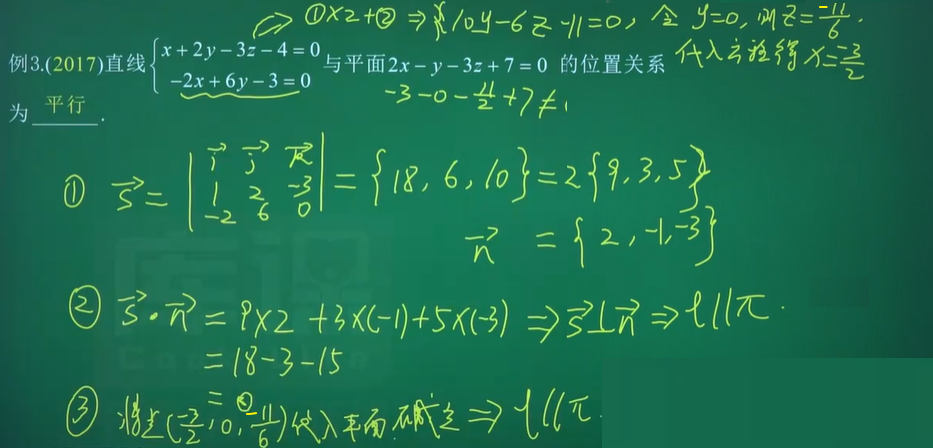 ①×2+② ⇒ {10y-6z-11=0, 令 y=0, 则 z=-11/6.
代入方程得 x=-3/2
例3.(2017)直线{x+2y-3z-4=0 -2x+6y-3=0 与平面2x-y-3z+7=0 的位置关系
-3-0-11/2+7≠
为 平行 .
① s⃗= |i⃗ j⃗ k⃗ 1 2 -3 -2 6 0| = {18, 6, 10} = 2{9, 3, 5}
n⃗ = {2, -1, -3}
② s⃗·n⃗ = 9×2 +3×(-1)+5×(-3) ⇒ s⃗⊥n⃗ ⇒ l∥π.
= 18-3-15
= 0
③ 将点(-3/2, 0, -11/6)代入平面 ⇒ l∥π.